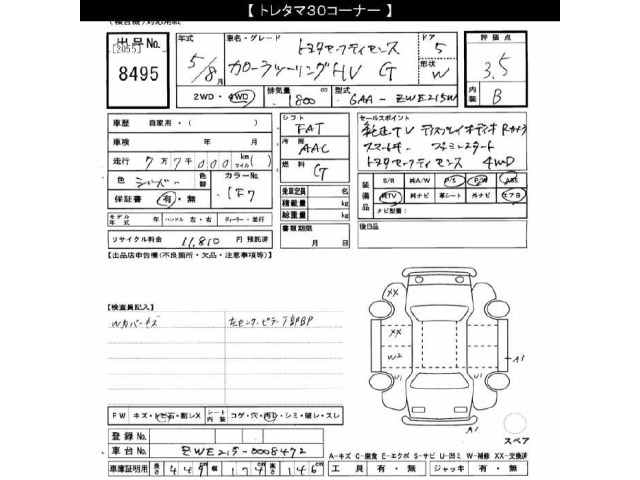 【 トレタマ30コーナー 】
(検査機)対応用紙
出品No.
[2055]
8495
年式
5/8月
車名・グレード
トヨタセーフティセンス
カローラツーリングHV G
ドア
5
形状
W
評価点
3.5
内装
B
2WD・4WD
排気量
1800 cc
型式
6AA-ZWE215W
車歴 自家用・( )
車検 年 月
走行 7万7千000 km(マイル)
色 シルバー 色替 カラーNo. 1F7
保証書 有・無
モデル年式 年 ハンドル 左・右 ディーラー・並行
リサイクル料金 11,810 円 預託済
シフト
FAT
冷房
AAC
燃料
G
乗車定員 名
積載量 kg
総重量 kg
書類期限
月 日
セールスポイント
純正TV ディスプレイオーディオ Rカメラ
スマートキー プッシュスタート
トヨタセーフティセンス 4WD
装備品
S/R 純A/W P/S P/W ABS
純TV 純ナビ 革シート 外ナビ エアB
ナビ型番:
後日品
【出品店申告欄(不良箇所・欠品・注意事項等)】
【検査員記入】
Wカバーキズ
左センターピラー下部BP
XX
XX
W2
W1
W1
A3
A1
スペア
FW キズ・ヒビ石・割レX
シート内装 コゲ・穴・汚レ・シミ・破レ・スレ
登録No.
車台No. ZWE215-0008472
車庫証明用 長さ 449 cm 幅 174 cm 高さ 146 cm
A-キズ C-腐食 E-エクボ S-サビ U-凹ミ W-補修 XX-交換済
工具 有・無 ジャッキ 有・無